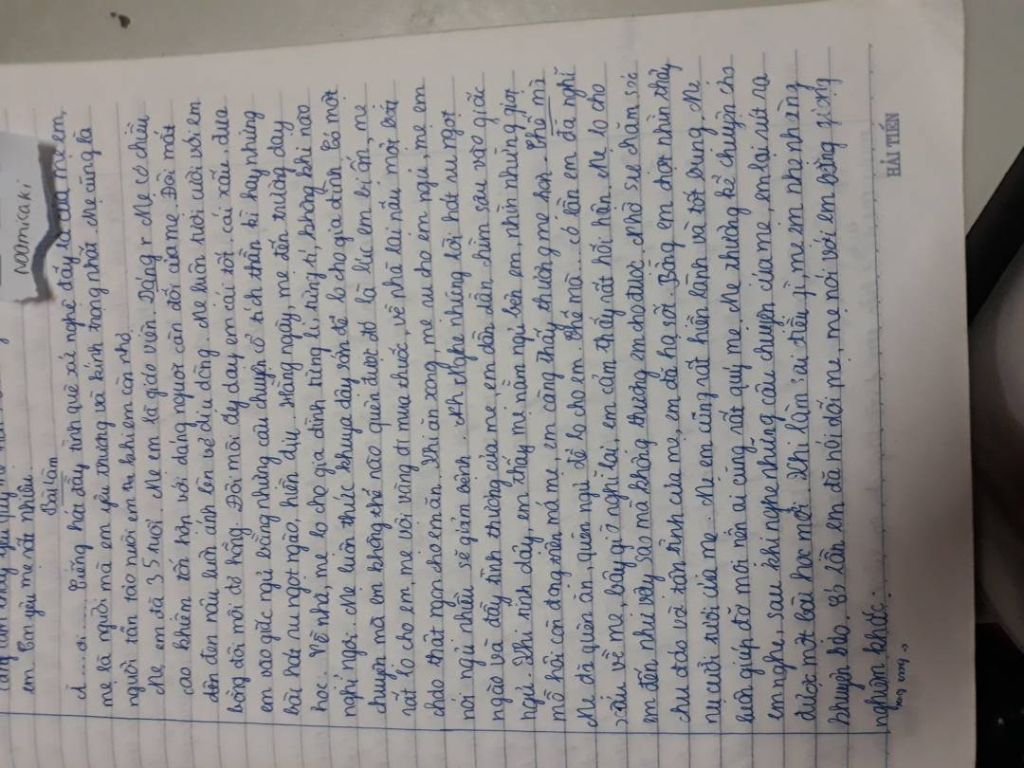 em con yêu mẹ rất nhiều.
Bài làm
à...ơi... Tiếng hát đầy tình quê xứ nghệ đấy là của mẹ em,
mẹ là người mà em yêu thương và kính trọng nhất. Mẹ cũng là
người tần tảo nuôi em khi em còn nhỏ.
Mẹ em đã 35 tuổi. Mẹ em là giáo viên. Dáng r Mẹ có chiều
cao khiêm tốn hơn với dáng người cân đối của mẹ. Đôi mắt
đen đen nâu luôn ánh lên vẻ dịu dàng. Mẹ luôn tươi cười với em
bằng đôi môi đỏ hồng. Đôi môi ấy dạy em cái tốt, cái xấu, đưa
em vào giấc ngủ bằng những câu chuyện cổ tích thần kì hay những
bài hát ru ngọt ngào, hiền dịu. Hằng ngày, mẹ đến trường dạy
học. Về nhà, mẹ lo cho gia đình từng li từng tí, không khi nào
nghỉ ngơi. Mẹ luôn thức khuya dậy sớm để lo cho gia đình. Có một
chuyện mà em không thể nào quên được đó là lúc em bị ốm, mẹ
rất lo cho em, mẹ vội vàng đi mua thuốc, về nhà lại nấu một bát
cháo thật ngon cho em ăn. Khi ăn xong mẹ ru cho em ngủ, mẹ em
nói ngủ nhiều sẽ giảm bệnh. Khi nghe những lời hát ru ngọt
ngào và đầy tình thương của mẹ, em dần dần chìm sâu vào giấc
ngủ. Khi tỉnh dậy, em thấy mẹ nằm ngủ bên em, nhìn những giọt
mồ hôi còn đọng trên má mẹ, em càng thấy thương mẹ hơn. Thế mà
Mẹ đã quên ăn, quên ngủ để lo cho em. Thế mà có lần em đã nghĩ
xấu về mẹ, bây giờ nghĩ lại, em cảm thấy rất hối hận. Mẹ lo cho
em đến như vậy sao mà không thương em cho được. Nhờ sự chăm sóc
chu đáo và tận tình của mẹ, em đã hạ sốt. Bỗng em chợt nhìn thấy
nụ cười tươi của mẹ. Mẹ em cũng rất hiền lành và tốt bụng, Mẹ
luôn giúp đỡ mọi nên ai cũng rất quý mẹ. Mẹ thường kể chuyện cho
em nghe, sau khi nghe những câu chuyện của mẹ, em lại rút ra
được một bài học mới. Khi lầm sai điều gì, mẹ em nhẹ nhàng
khuyên bảo. Có lần em đã nói dối mẹ, mẹ nói với em bằng giọng
nghiêm khắc:
noomisaki
HẢI TIẾN